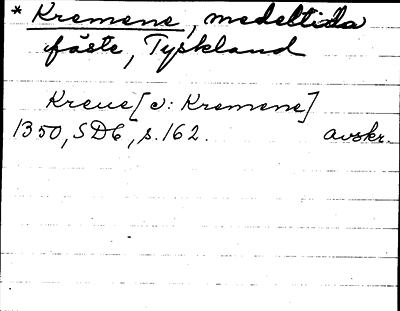 * Kremene, medeltida
fäste, Tyskland
Kreue[v: Kremene]
1350, SD6, s. 162. avskr.